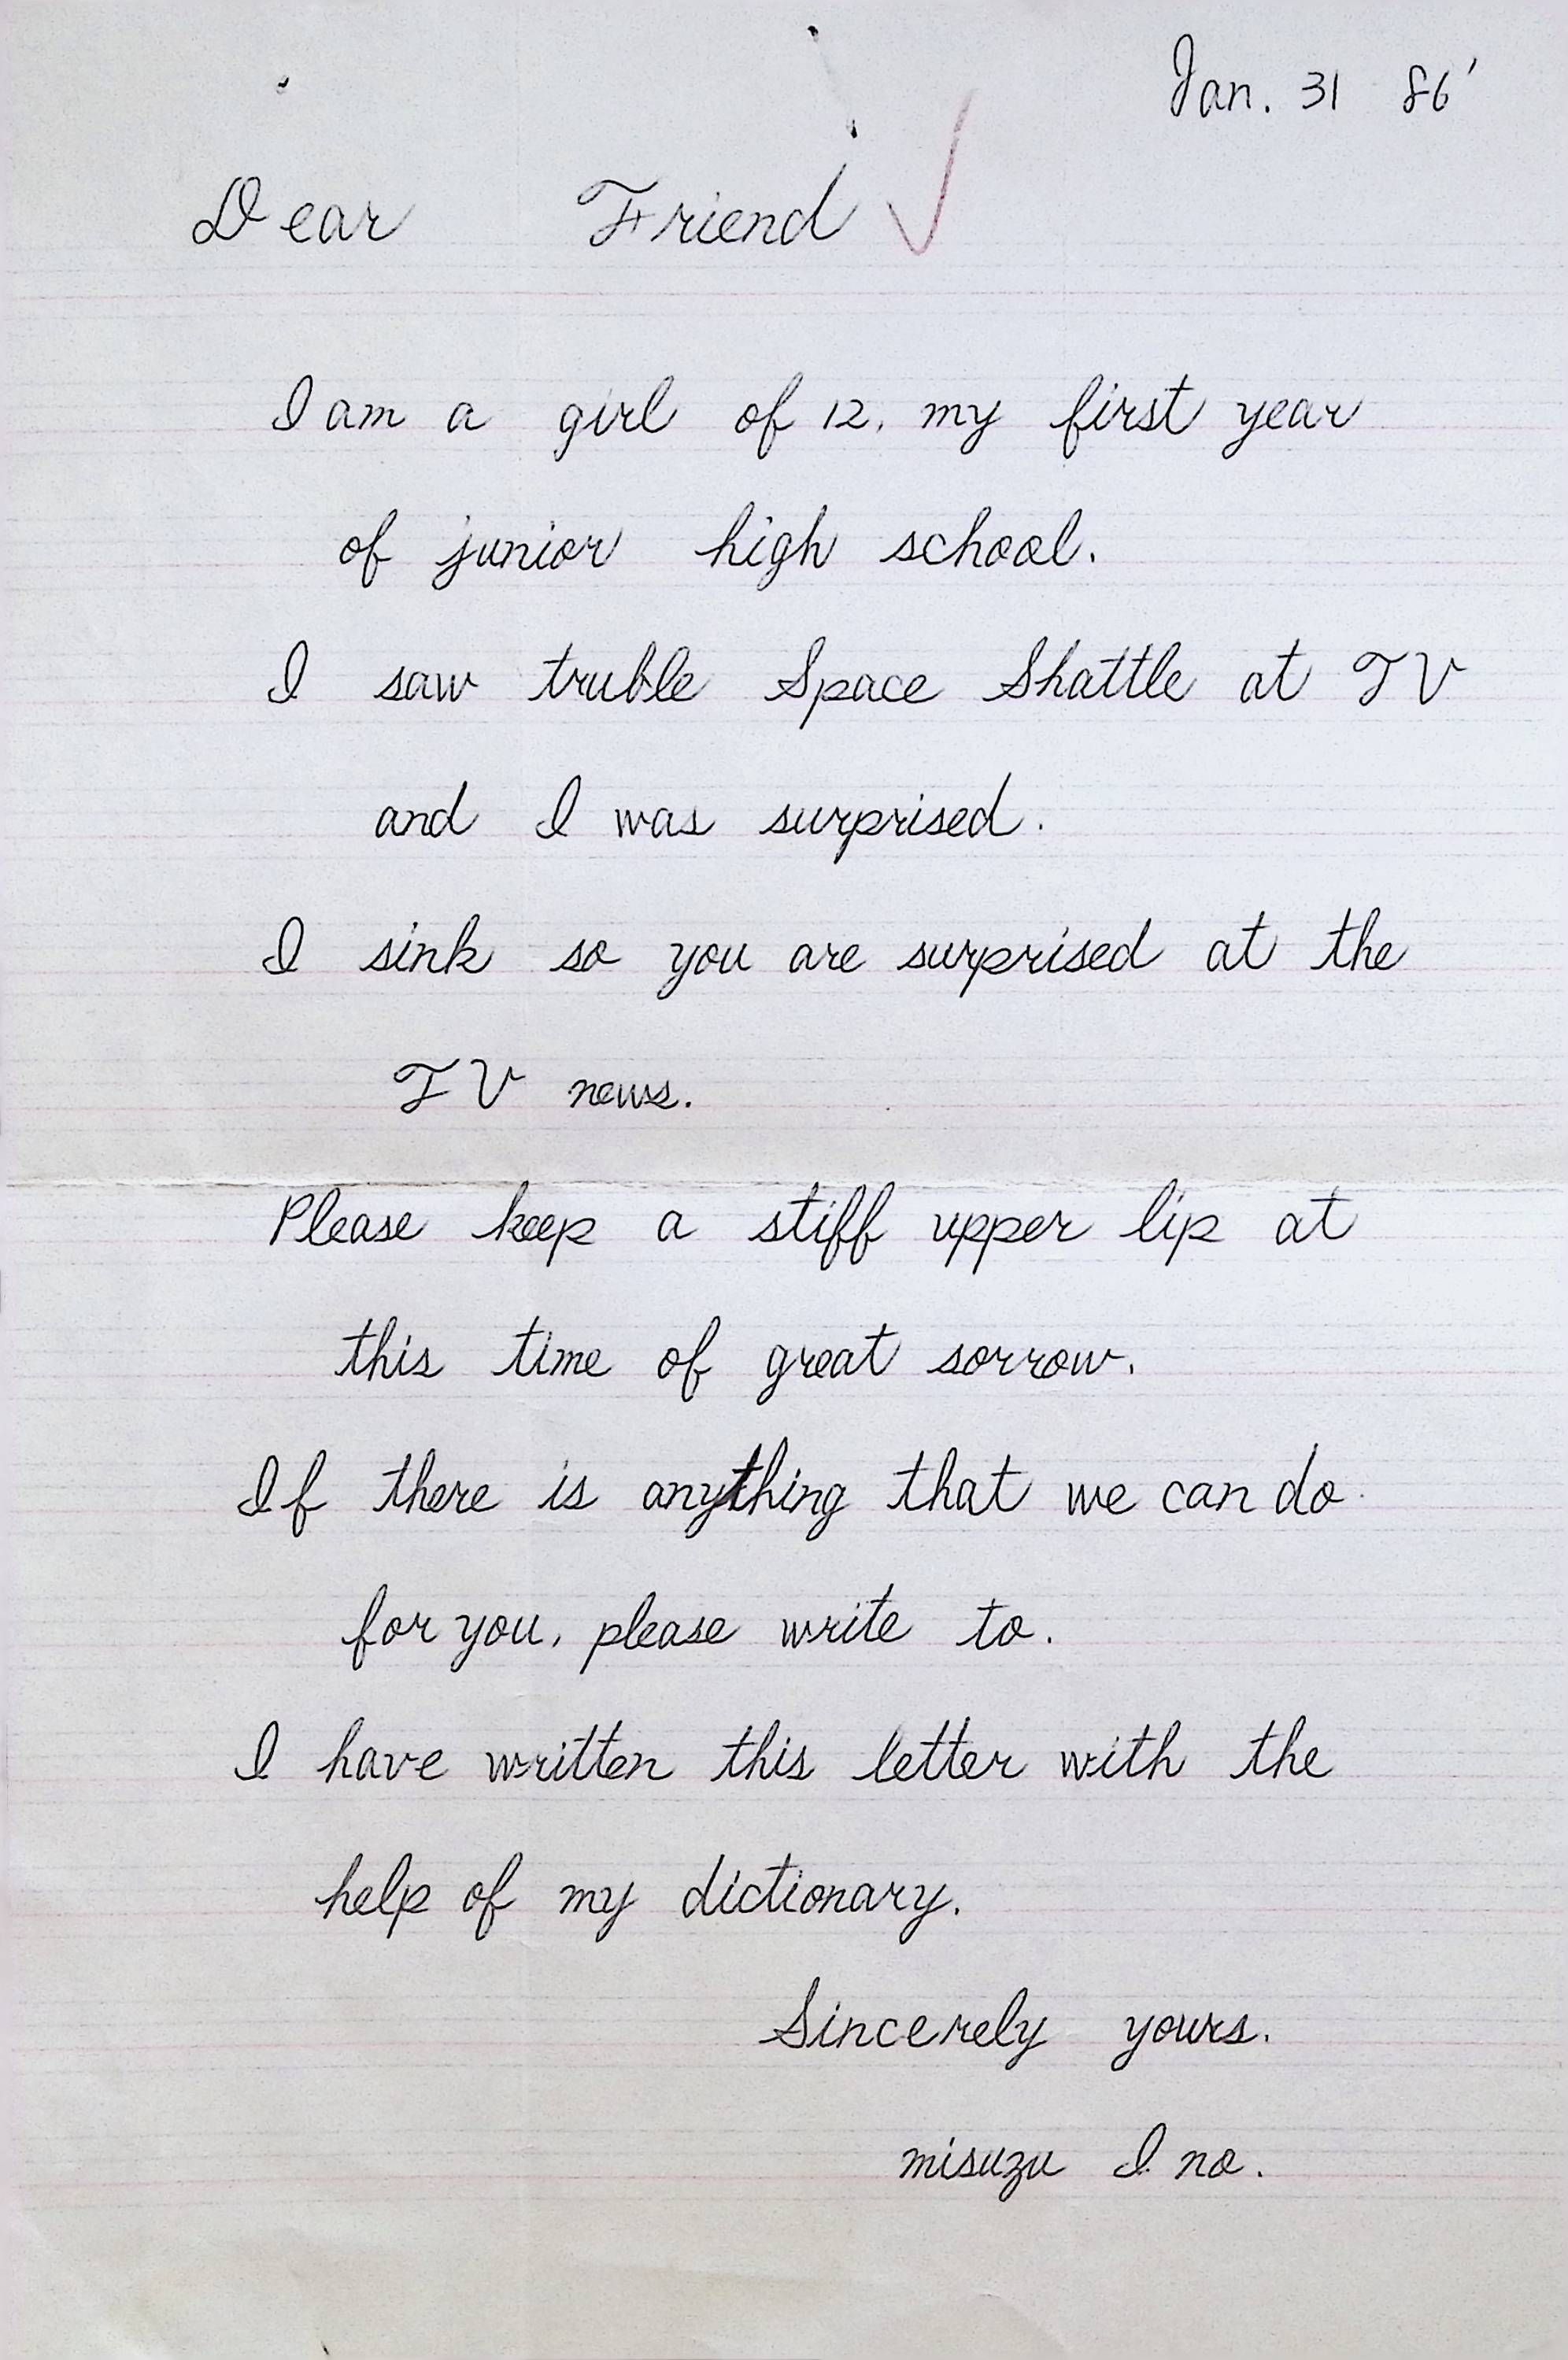 Jan. 31 86'
Dear Friend
I am a girl of 12, my first year
of junior high school.
I saw truble Space Shattle at TV
and I was surprised.
I sink so you are surprised at the
TV news.
Please keep a stiff upper lip at
this time of great sorrow.
If there is anything that we can do
for you, please write to.
I have written this letter with the
help of my dictionary.
Sincerely yours.
misuzu Ino.